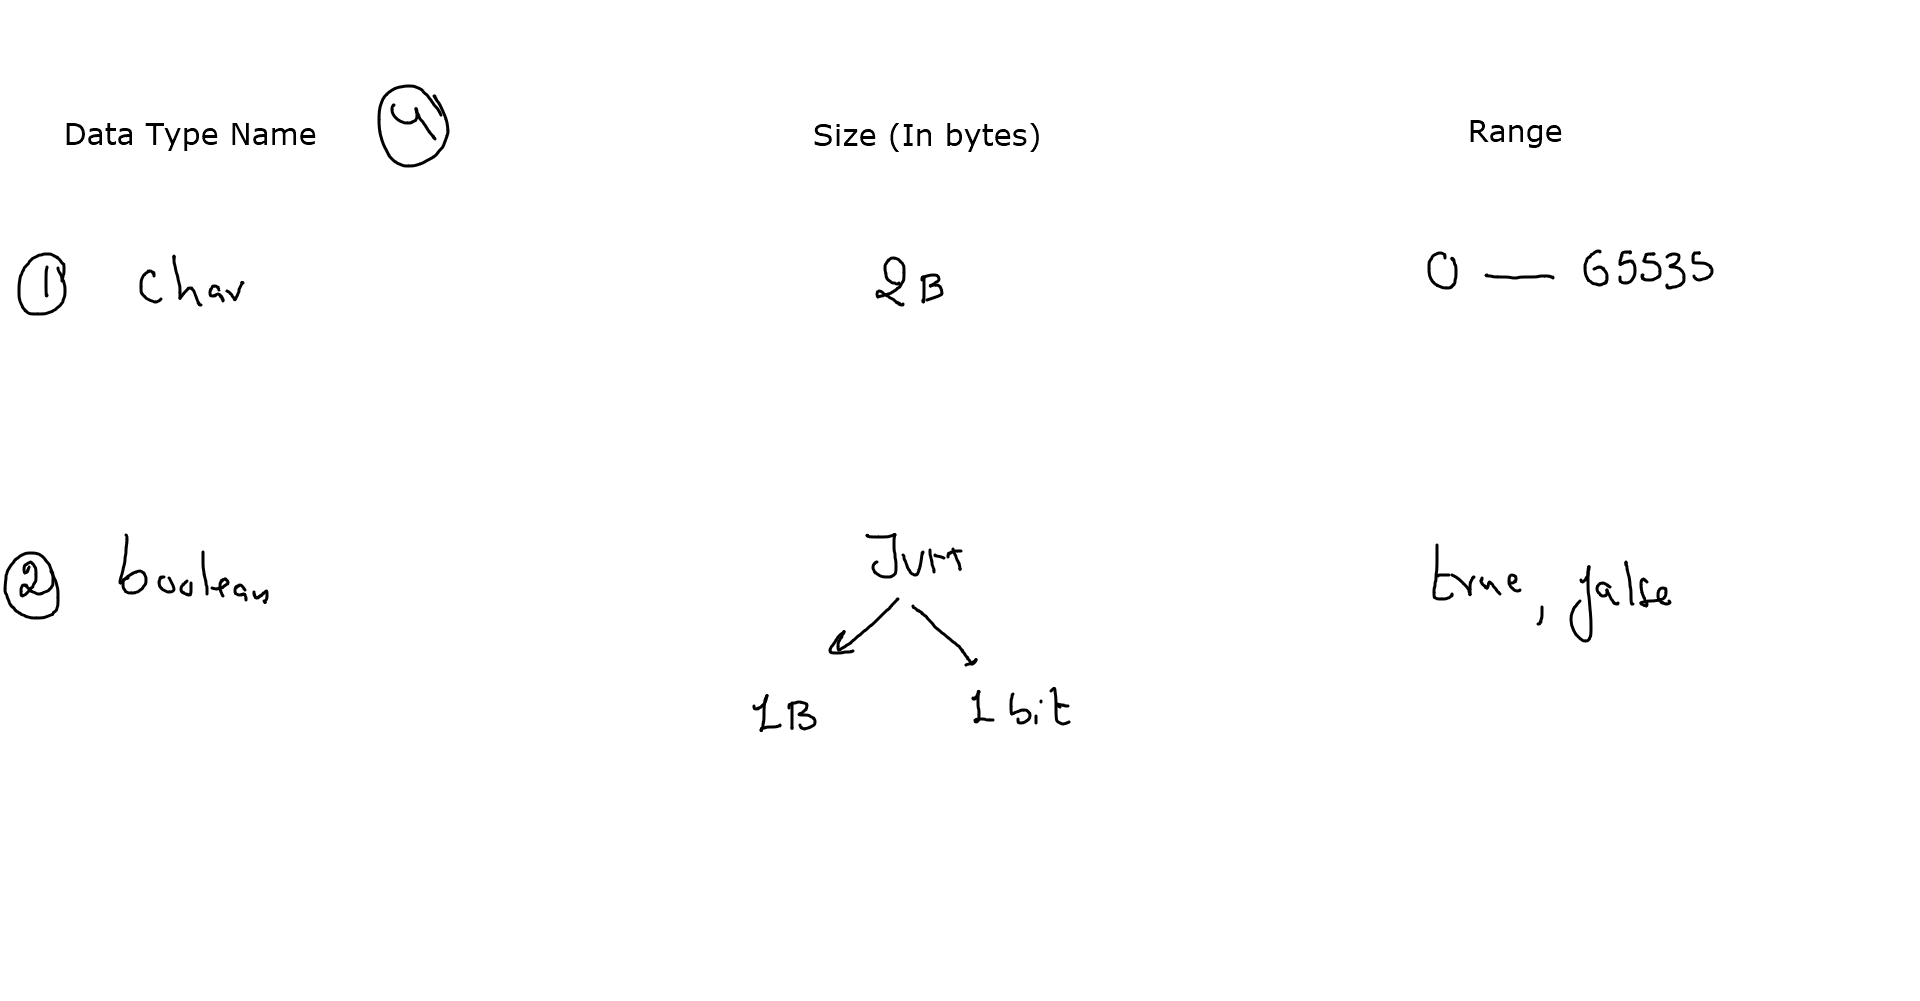 Data Type Name 4 Size (In bytes) Range
1 char 2B 0 — 65535
2 boolean JVM true, false
1B 1 bit